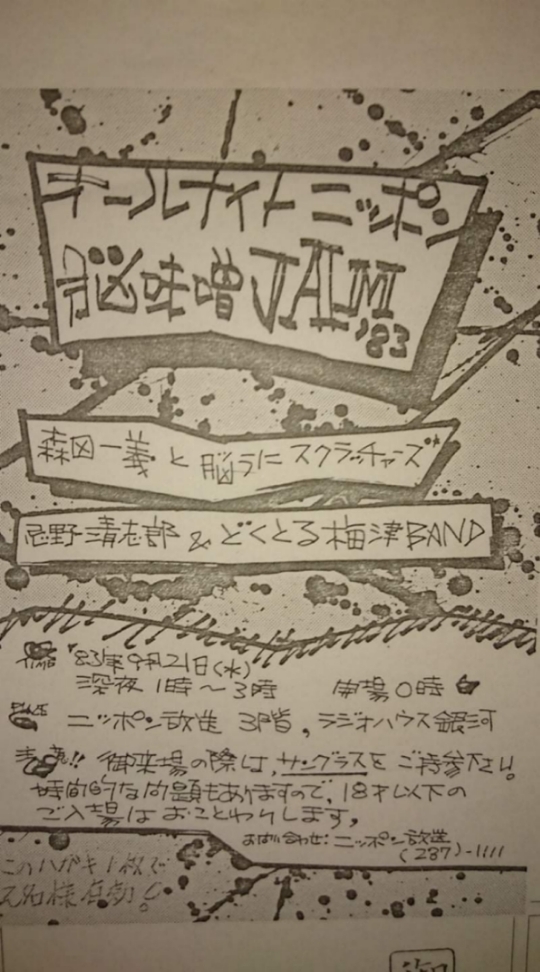 オールナイトニッポン
脳味噌JAM'83
森田一義と脳ラにスクラッチャーズ
忌野清志郎&どくとる梅津BAND
'83年9月21日(水)
深夜1時～3時 開場0時
ニッポン放送 3階,ラジオハウス銀河
注意!! 御来場の際は,サングラスをご持参下さい。
時間的な問題もありますので,18才以下の
ご入場はおことわりします,
お問い合わせ:ニッポン放送
(287)-1111
このハガキ1枚で
2名様有効!